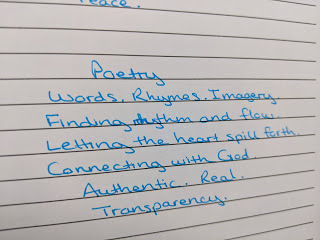 Peace.
Poetry
Words. Rhymes. Imagery.
Finding rhythm and flow.
Letting the heart spill forth.
Connecting with God.
Authentic. Real.
Transparency.